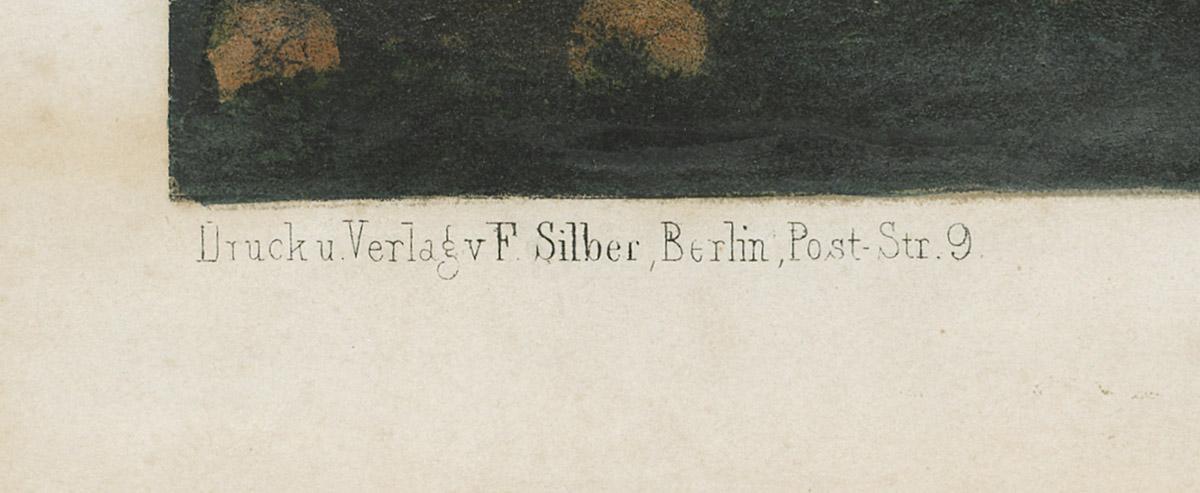 Druck u. Verlag v F. Silber, Berlin, Post-Str. 9.